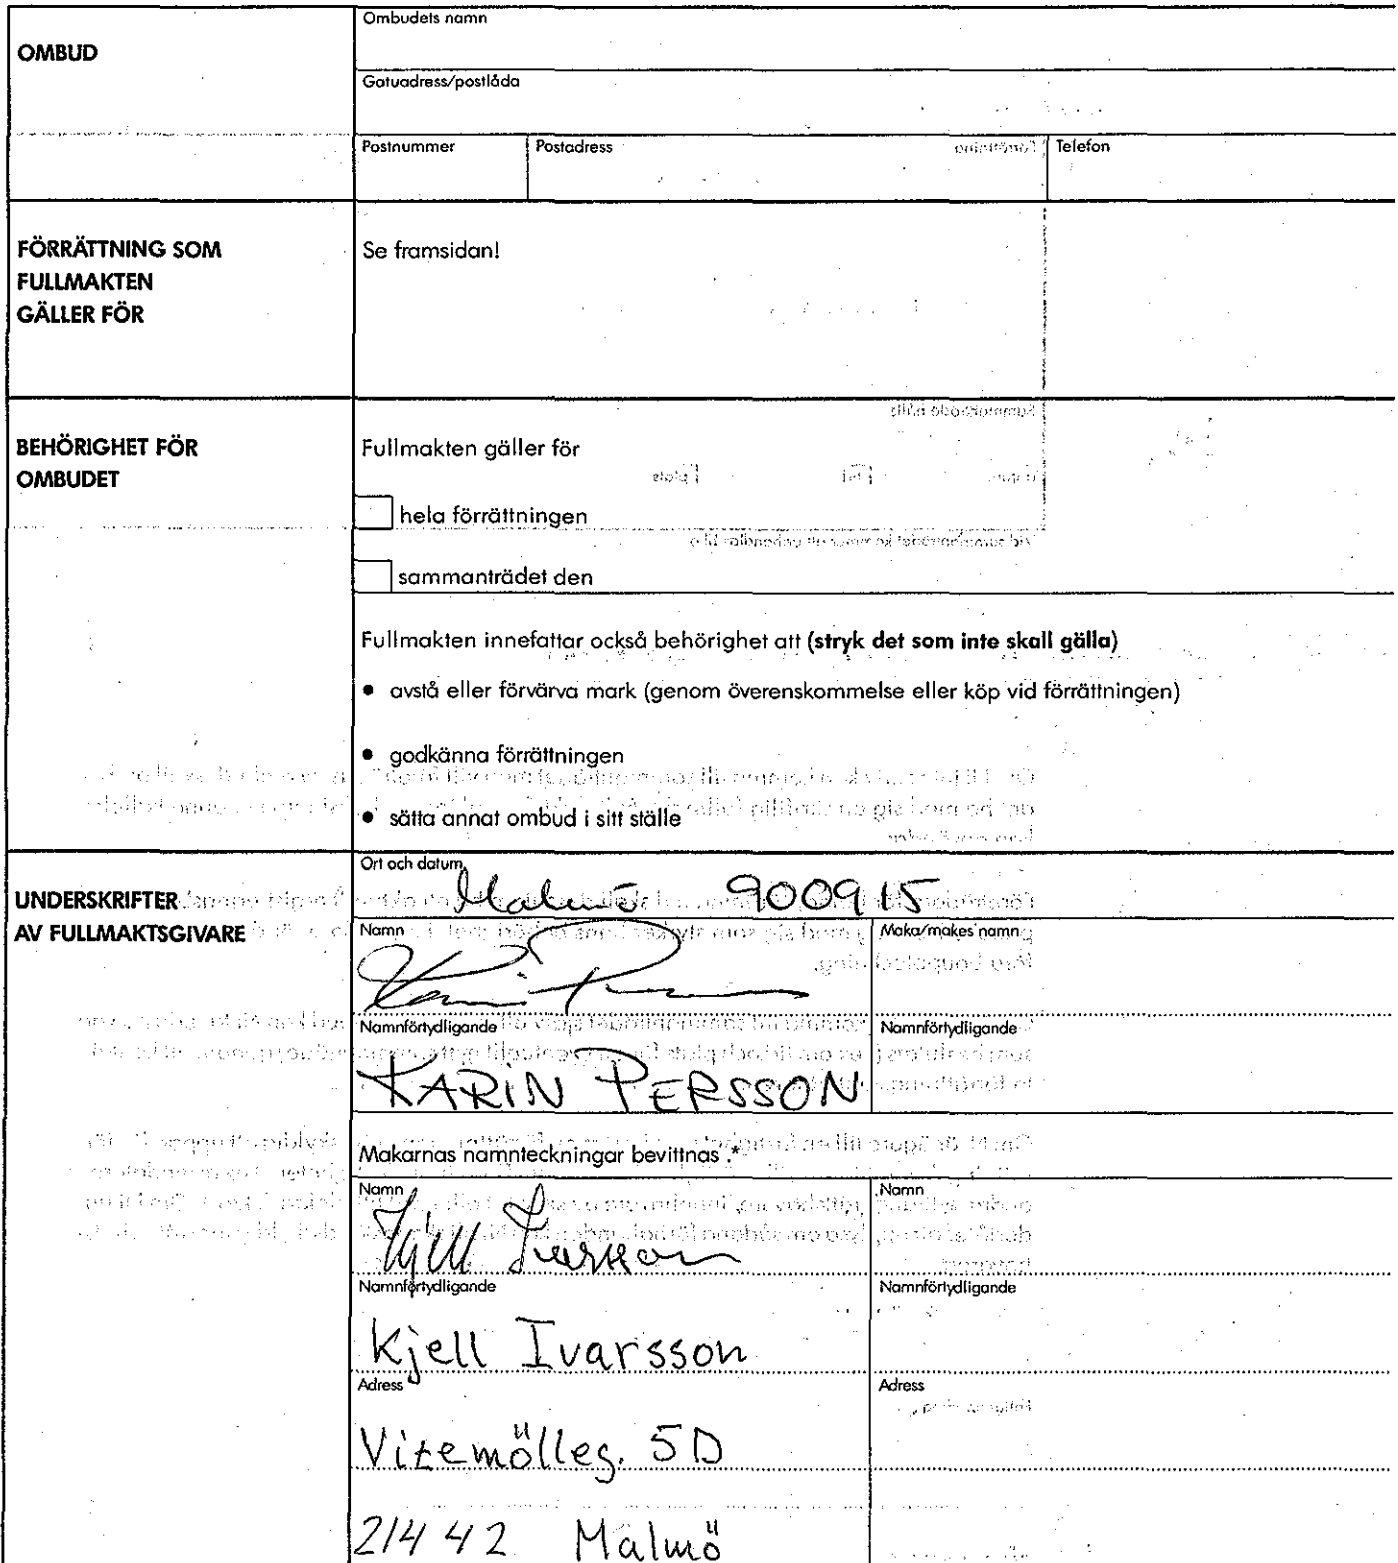 OMBUD
Ombudets namn
Gatuadress/postlåda
Postnummer Postadress Telefon
FÖRRÄTTNING SOM
FULLMAKTEN
GÄLLER FÖR
Se framsidan!
BEHÖRIGHET FÖR
OMBUDET
Fullmakten gäller för
hela förrättningen
sammanträdet den
Fullmakten innefattar också behörighet att (stryk det som inte skall gälla)
• avstå eller förvärva mark (genom överenskommelse eller köp vid förrättningen)
• godkänna förrättningen
• sätta annat ombud i sitt ställe
UNDERSKRIFTER
AV FULLMAKTSGIVARE
Ort och datum
Malmö 900915
Namn Maka/makes namn
Karin Persson
Namnförtydligande Namnförtydligande
KARIN PERSSON
Makarnas namnteckningar bevittnas .*
Namn Namn
Kjell Ivarsson
Namnförtydligande Namnförtydligande
Kjell Ivarsson
Adress Adress
Vitemölleg. 5D
214 42 Malmö